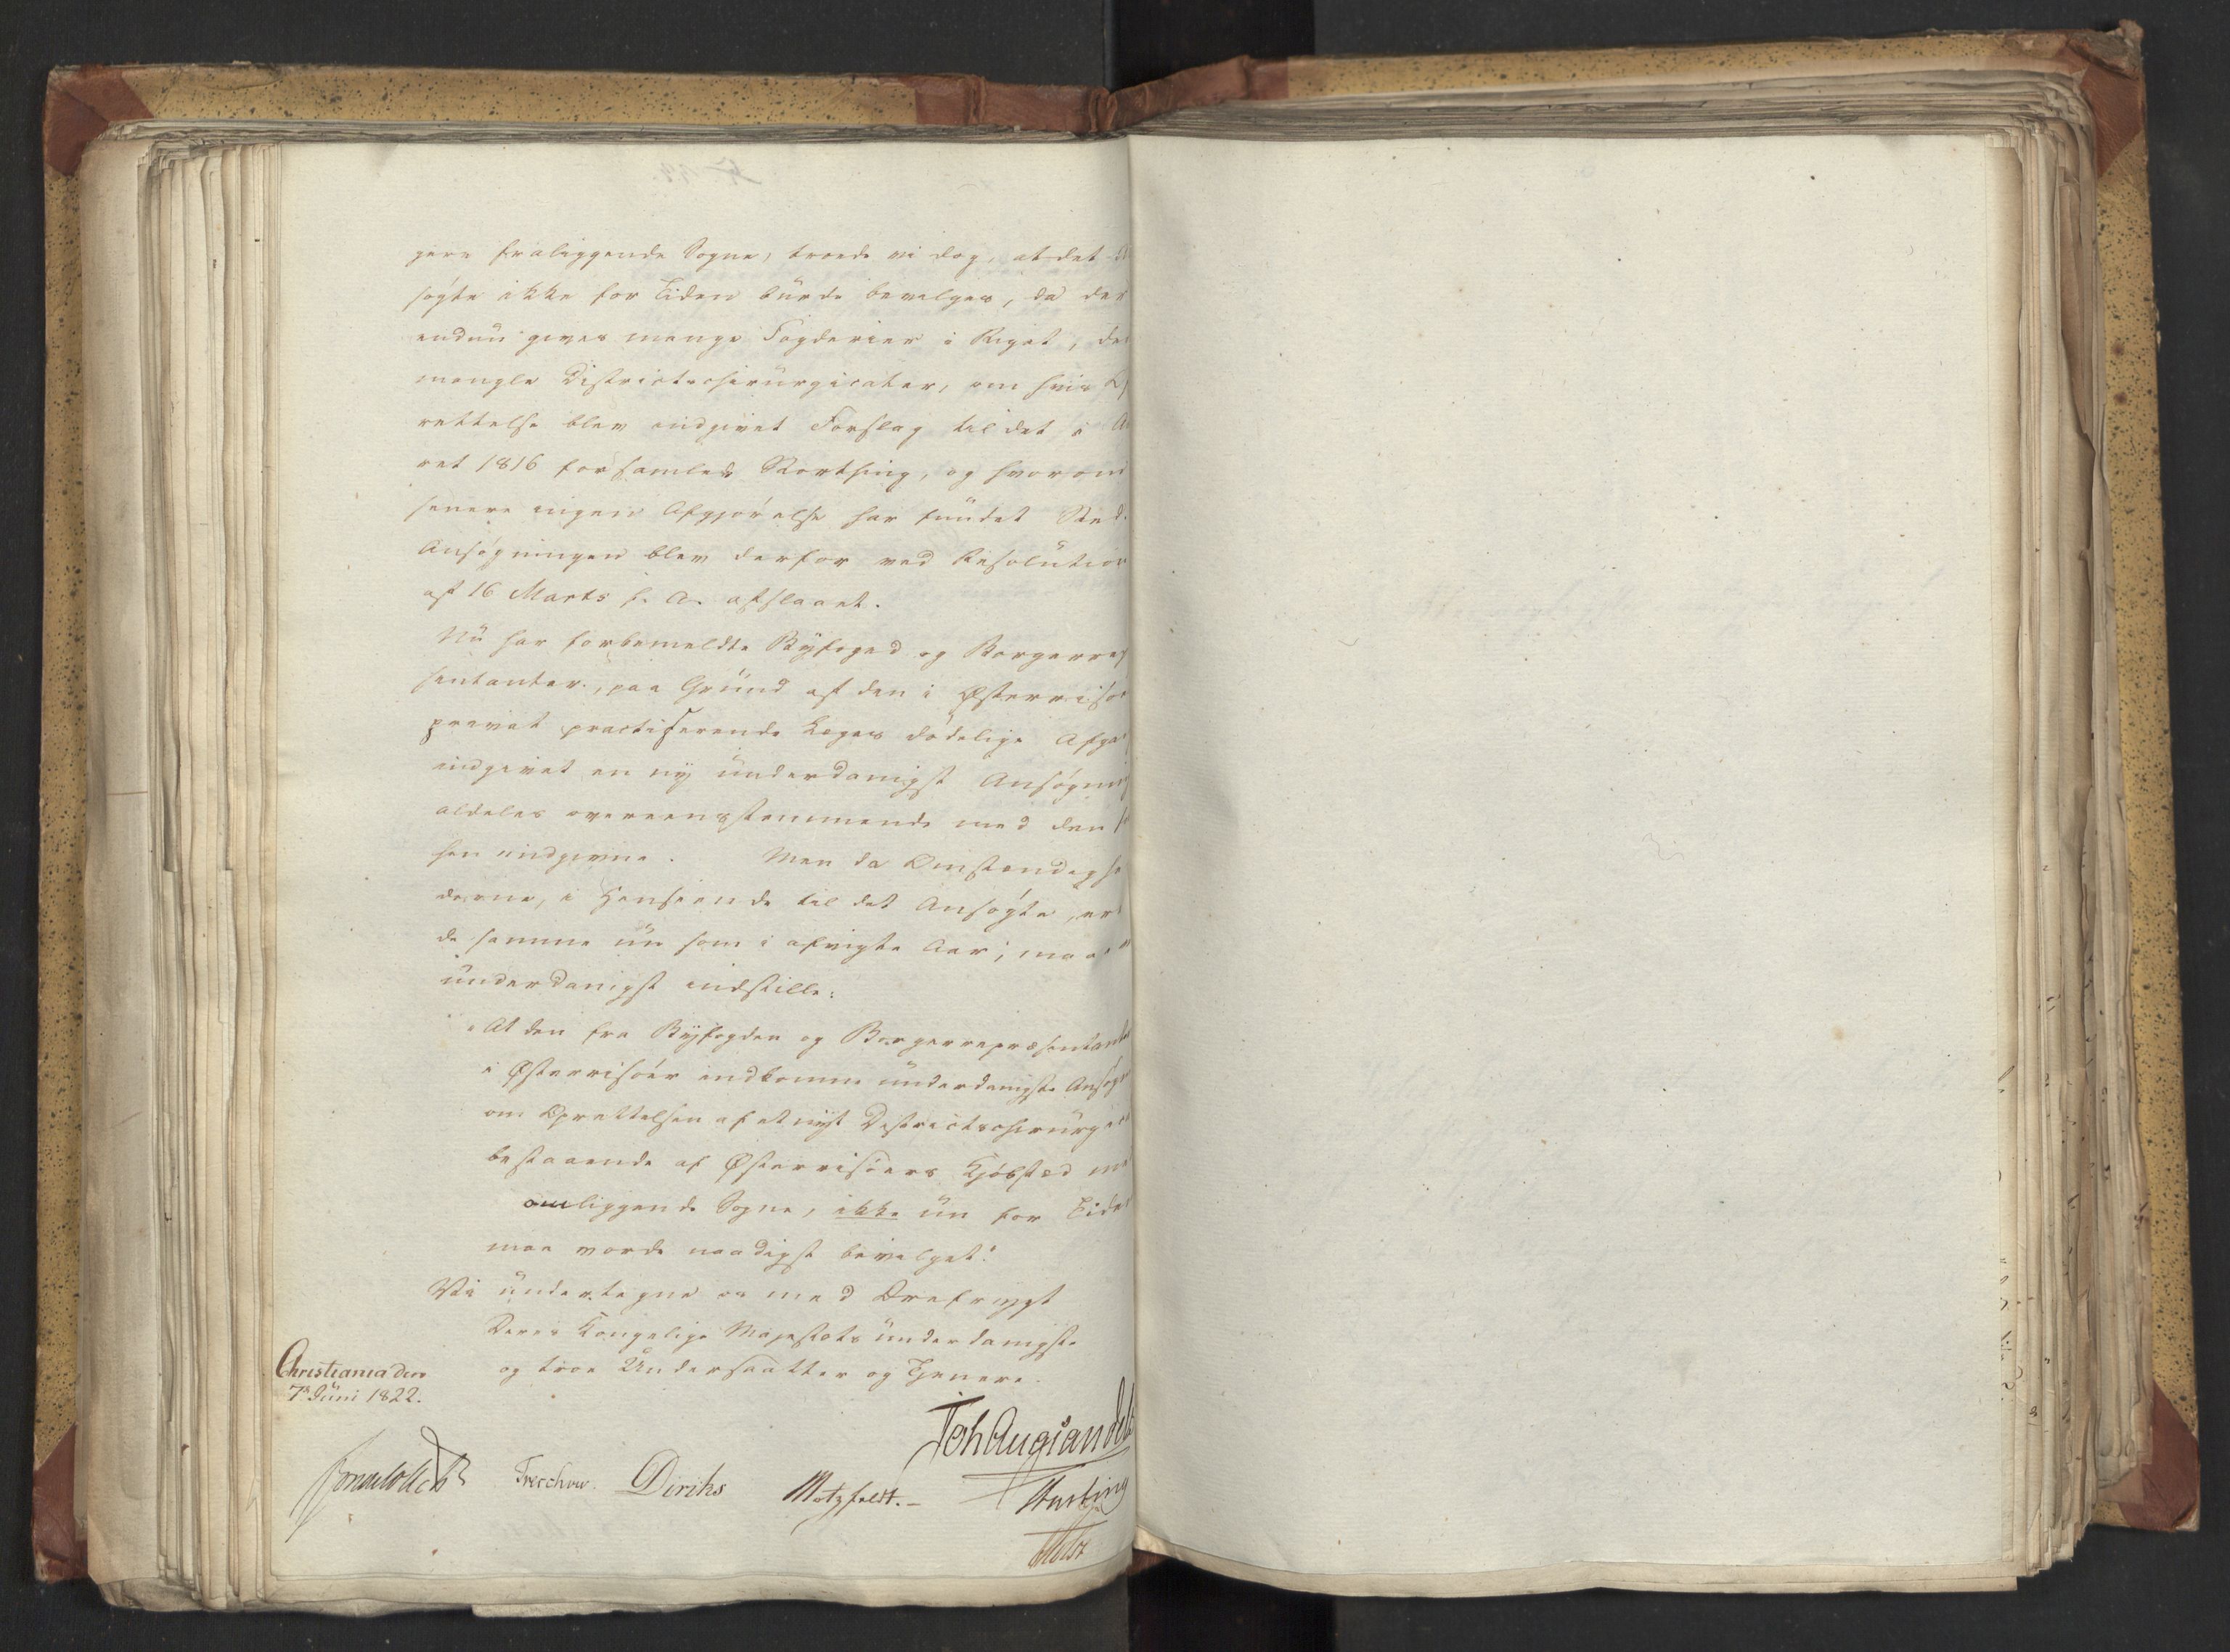 gere fraliggende Sogne, troede vi dog, at det
søgte ikke for Tiden bürde bevilges, da der
endnü gives mange Fogderier i Riget, der
mangle Districtschirürgicater, om hvis
rettelse blev indgivet Forslag til det i
ret 1816 forsamlede Storthing, og hvorom
senere ingen Afgjørelse har fündet Sted.
Ansøgningen blev derfor ved Resolution
af 16 Marts f. A. afslaaet.
Nü har forbemeldte Byfoged og Borgerrep
sentanter, paa Gründ af den i Østerrisøer
privat practiserende Læges dødelige Afga
indgivet en ny ünderdanigst Ansøgni
aldeles overeensstemmende med den
hen indgivne. Men da Omstændighe
derne, i Henseende til det Ansøgte, ere
de samme nü som i afvigte Aar; maa
ünderdanigst indstille:
"At den fra Byfogden og Borgerrepræsentante
i Østerrisøer indkomne ünderdanigste Ansøgn
om Oprettelsen af et nyt Districtschirürgic
bestaaende af Østerrisøers Kjøbsted
omliggende Sogne, ikke nü for Tiden
maa vorde naadigst bevilget."
Vi ündertegne os med Ærefrygt
Deres Kongelige Majestæts ünderdanigste
og troe Undersaatter og Tjenere.
Christiania den
7de Jüni 1822.
Joh Aug Sandels
Sommerhielm Treschow. Diriks Motzfeldt. Fasting
Holst